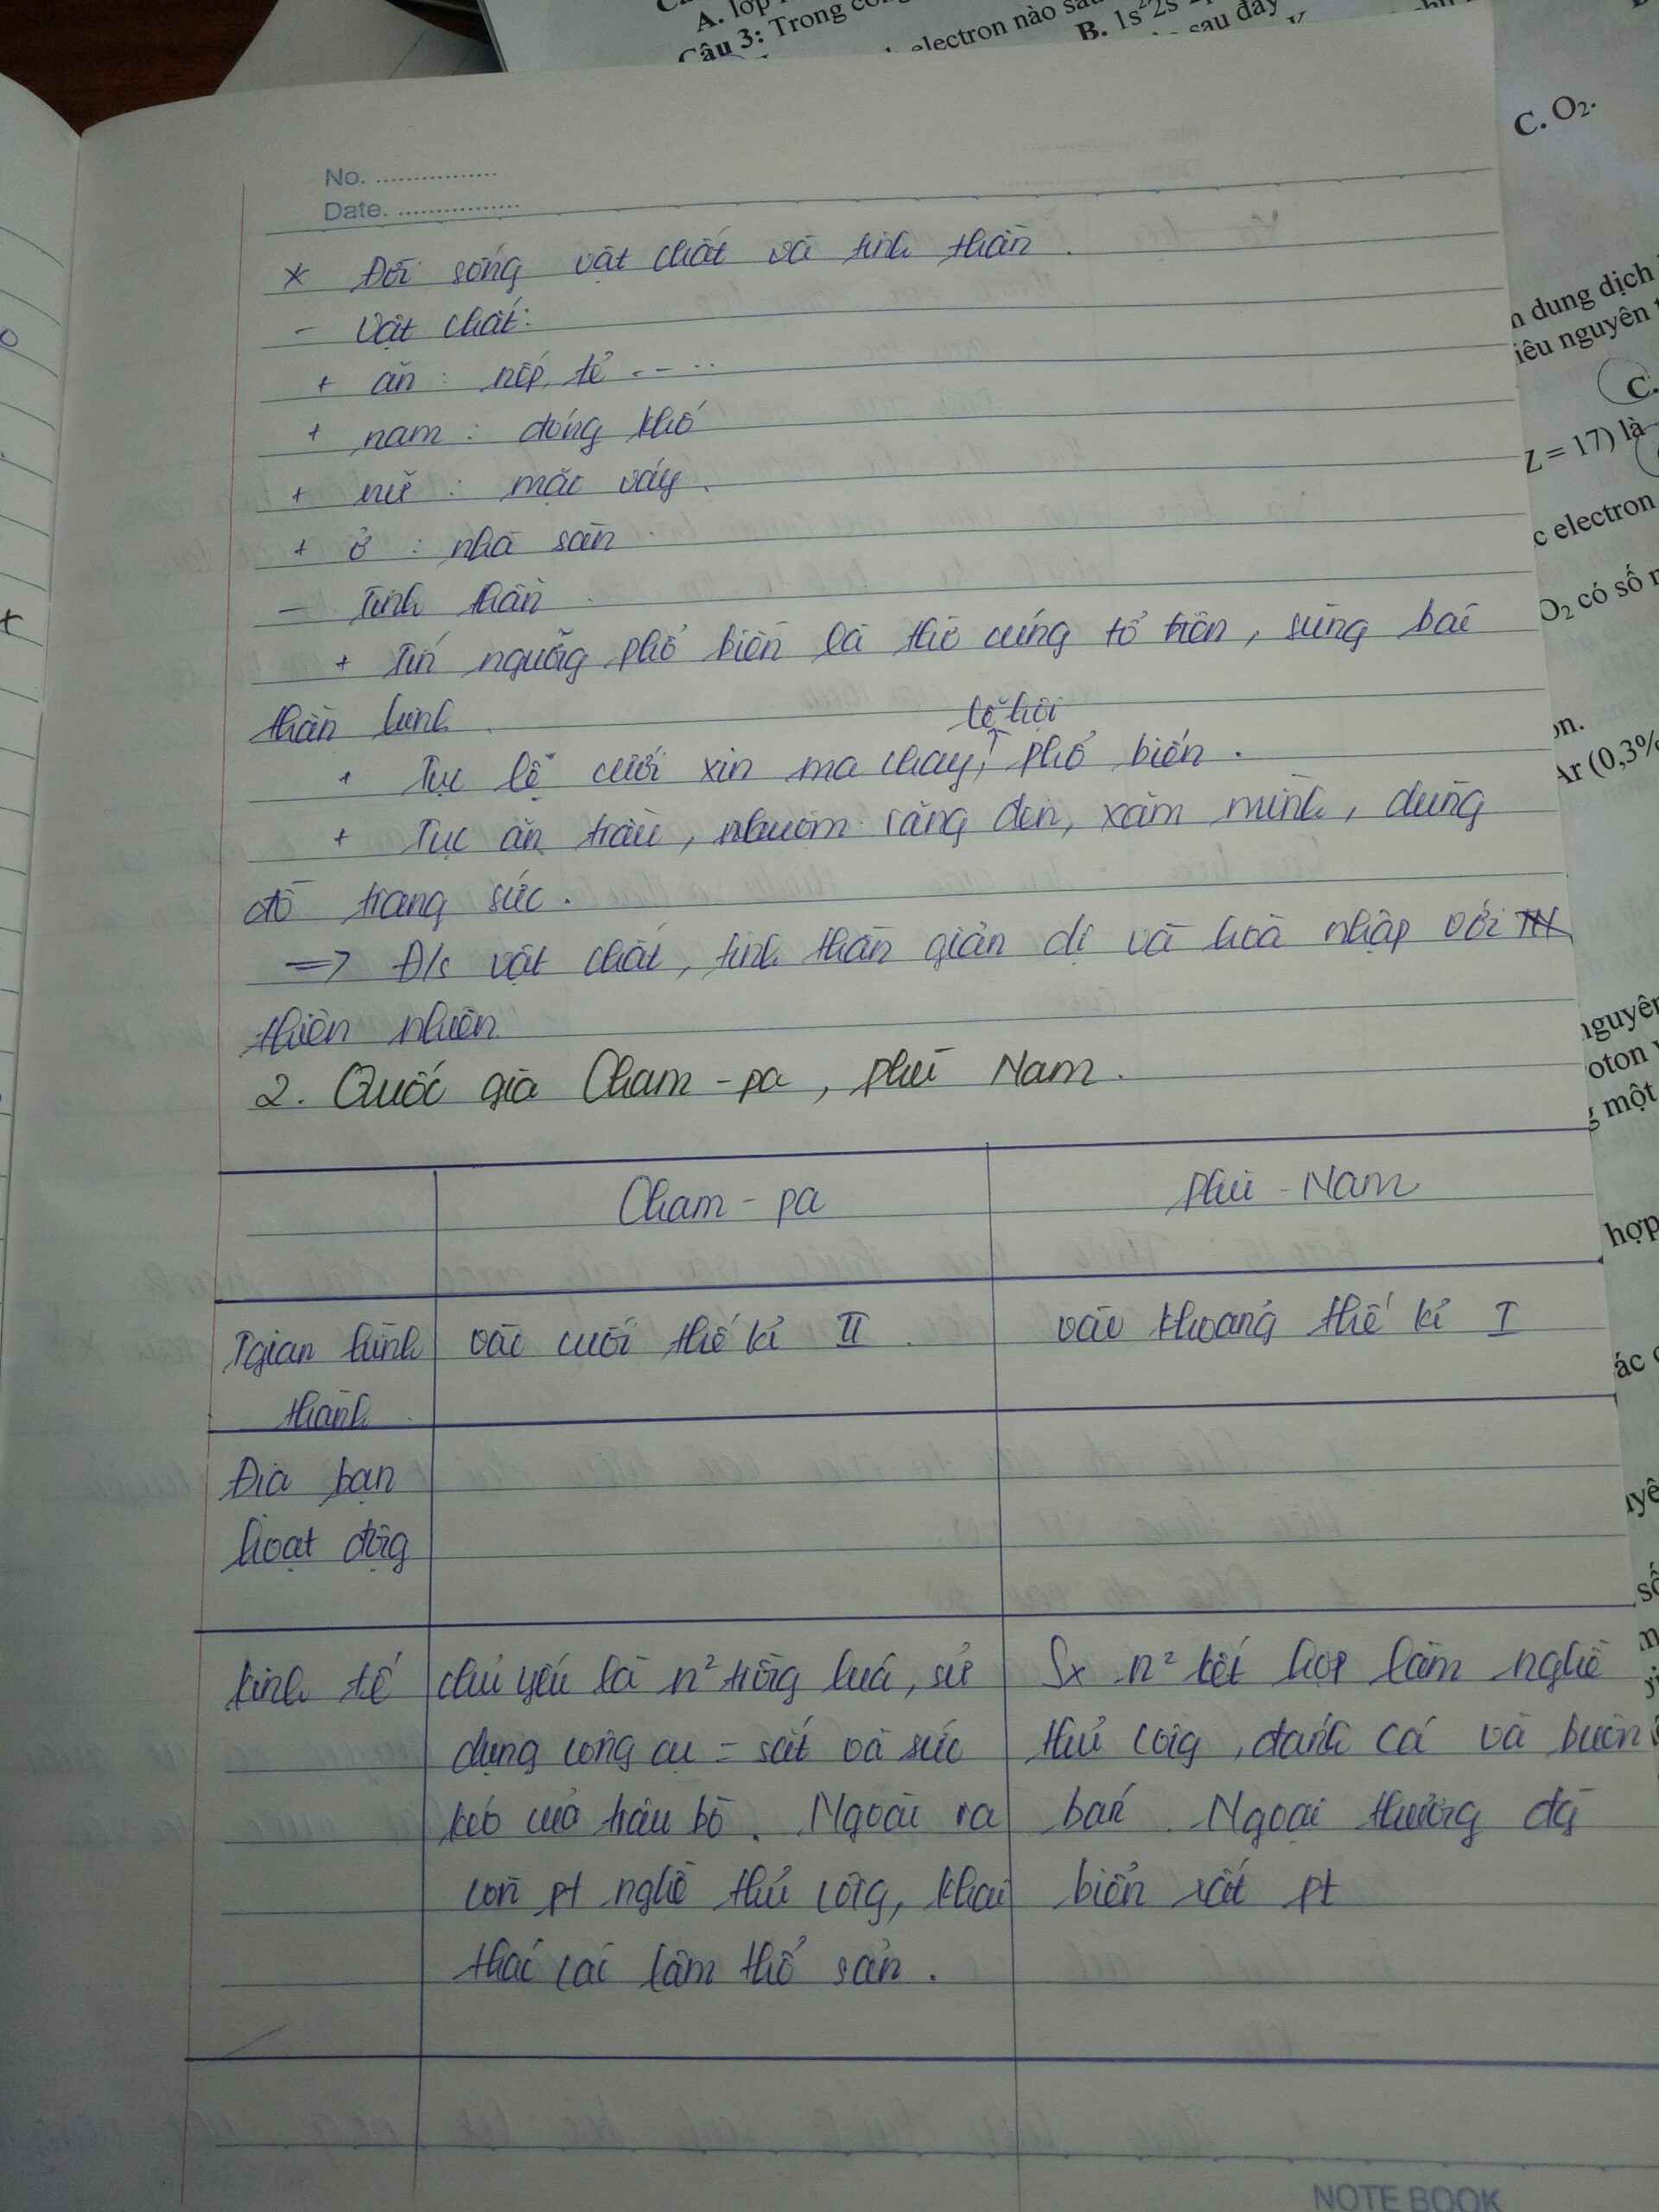 A. lớp
Câu 3: Trong
electron nào sau
B. 1s² 2s
sau đây
C. O₂.
No.
Date.
* Đời sống vật chất và tinh thần.
- Vật chất:
+ ăn : nếp, tẻ .....
+ nam : đóng khố
+ nữ : mặc váy.
+ ở : nhà sàn
- Tinh thần
+ Tín ngưỡng phổ biến là thờ cúng tổ tiên, sùng bái
thần linh.
lễ hội
+ Tục lệ cưới xin ma chay, ↑ phổ biến.
+ Tục ăn trầu, nhuộm răng đen, xăm mình, dùng
đồ trang sức.
=> Đ/s vật chất, tinh thần giản dị và hoà nhập với
thiên nhiên
2. Quốc gia Cham-pa, phù Nam.
Cham - pa
phù - Nam
Tgian hình
thành
vào cuối thế kỉ II.
vào khoảng thế kỉ I
Địa bạn
hoạt động
kinh tế
chủ yếu là n² trồng luá, sử
dụng công cụ = sắt và sức
kéo cuả trâu bò. Ngoài ra
còn pt nghề thủ công, khai
thác các lâm thổ sản.
Sx n² kết hợp làm nghề
thủ công, đánh cá và buôn
bán. Ngoại thương đg
biển rất pt
dung dịch
iêu nguyên
C.
Z = 17) là
c electron
O₂ có số
on.
Ar (0,3%
nguyên
oton
một
hợp
ác
số
NOTE BOOK